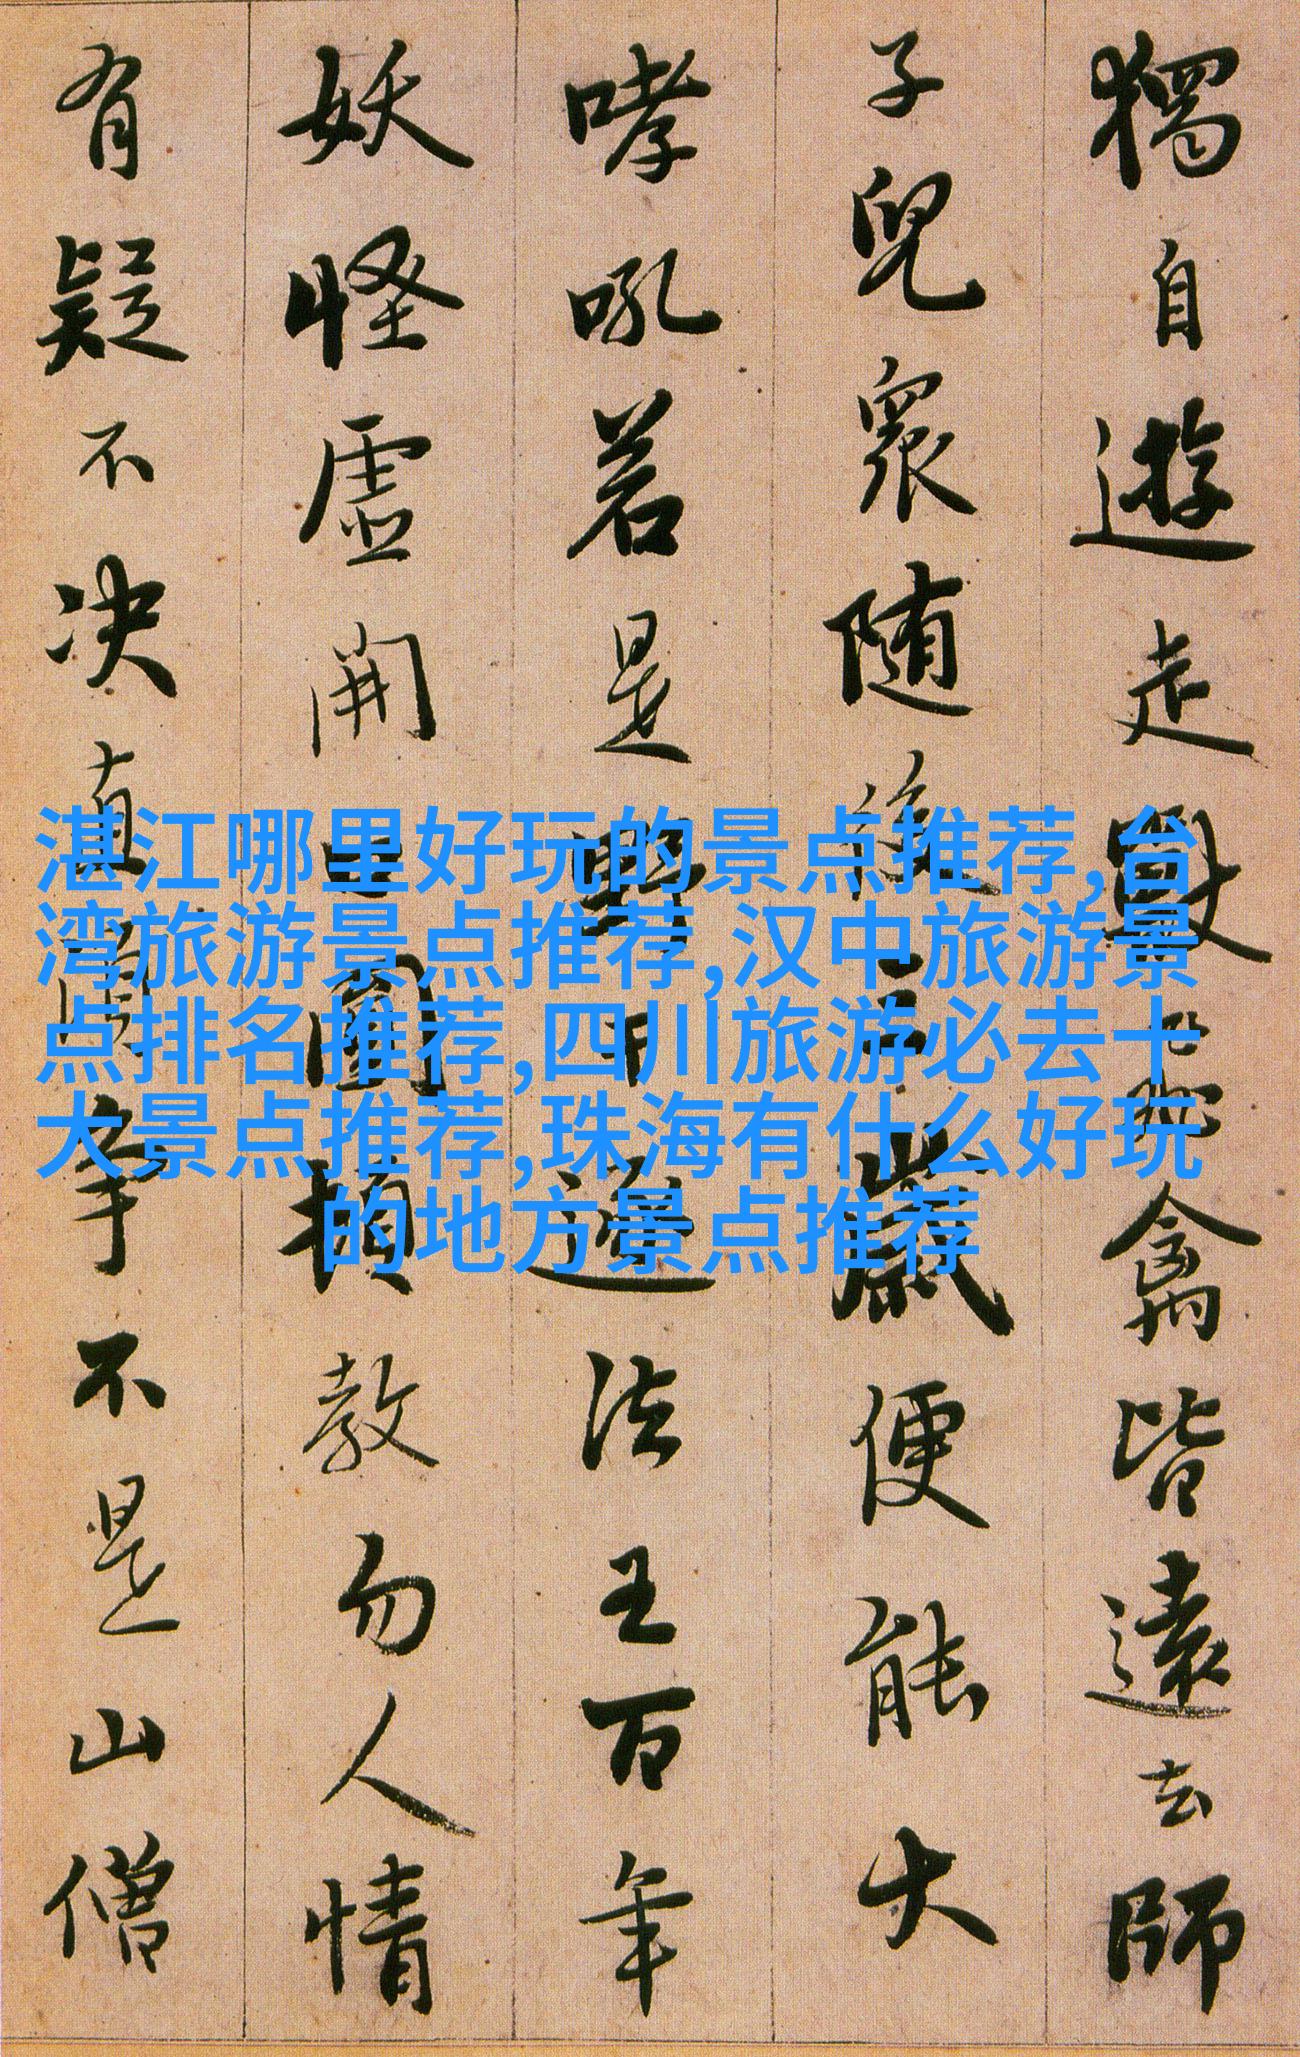 獨自遊走獸飛禽皆遠去師
子兒衆随後三歲便能大
哮吼若是野干逐法王百年
妖怪虛開口圓頓教勿人情
有疑不決直須争不是山僧
湛江哪里好玩的景点推荐,台
湾旅游景点推荐,汉中旅游景
点排名推荐,四川旅游必去十
大景点推荐,珠海有什么好玩
的地方景点推荐